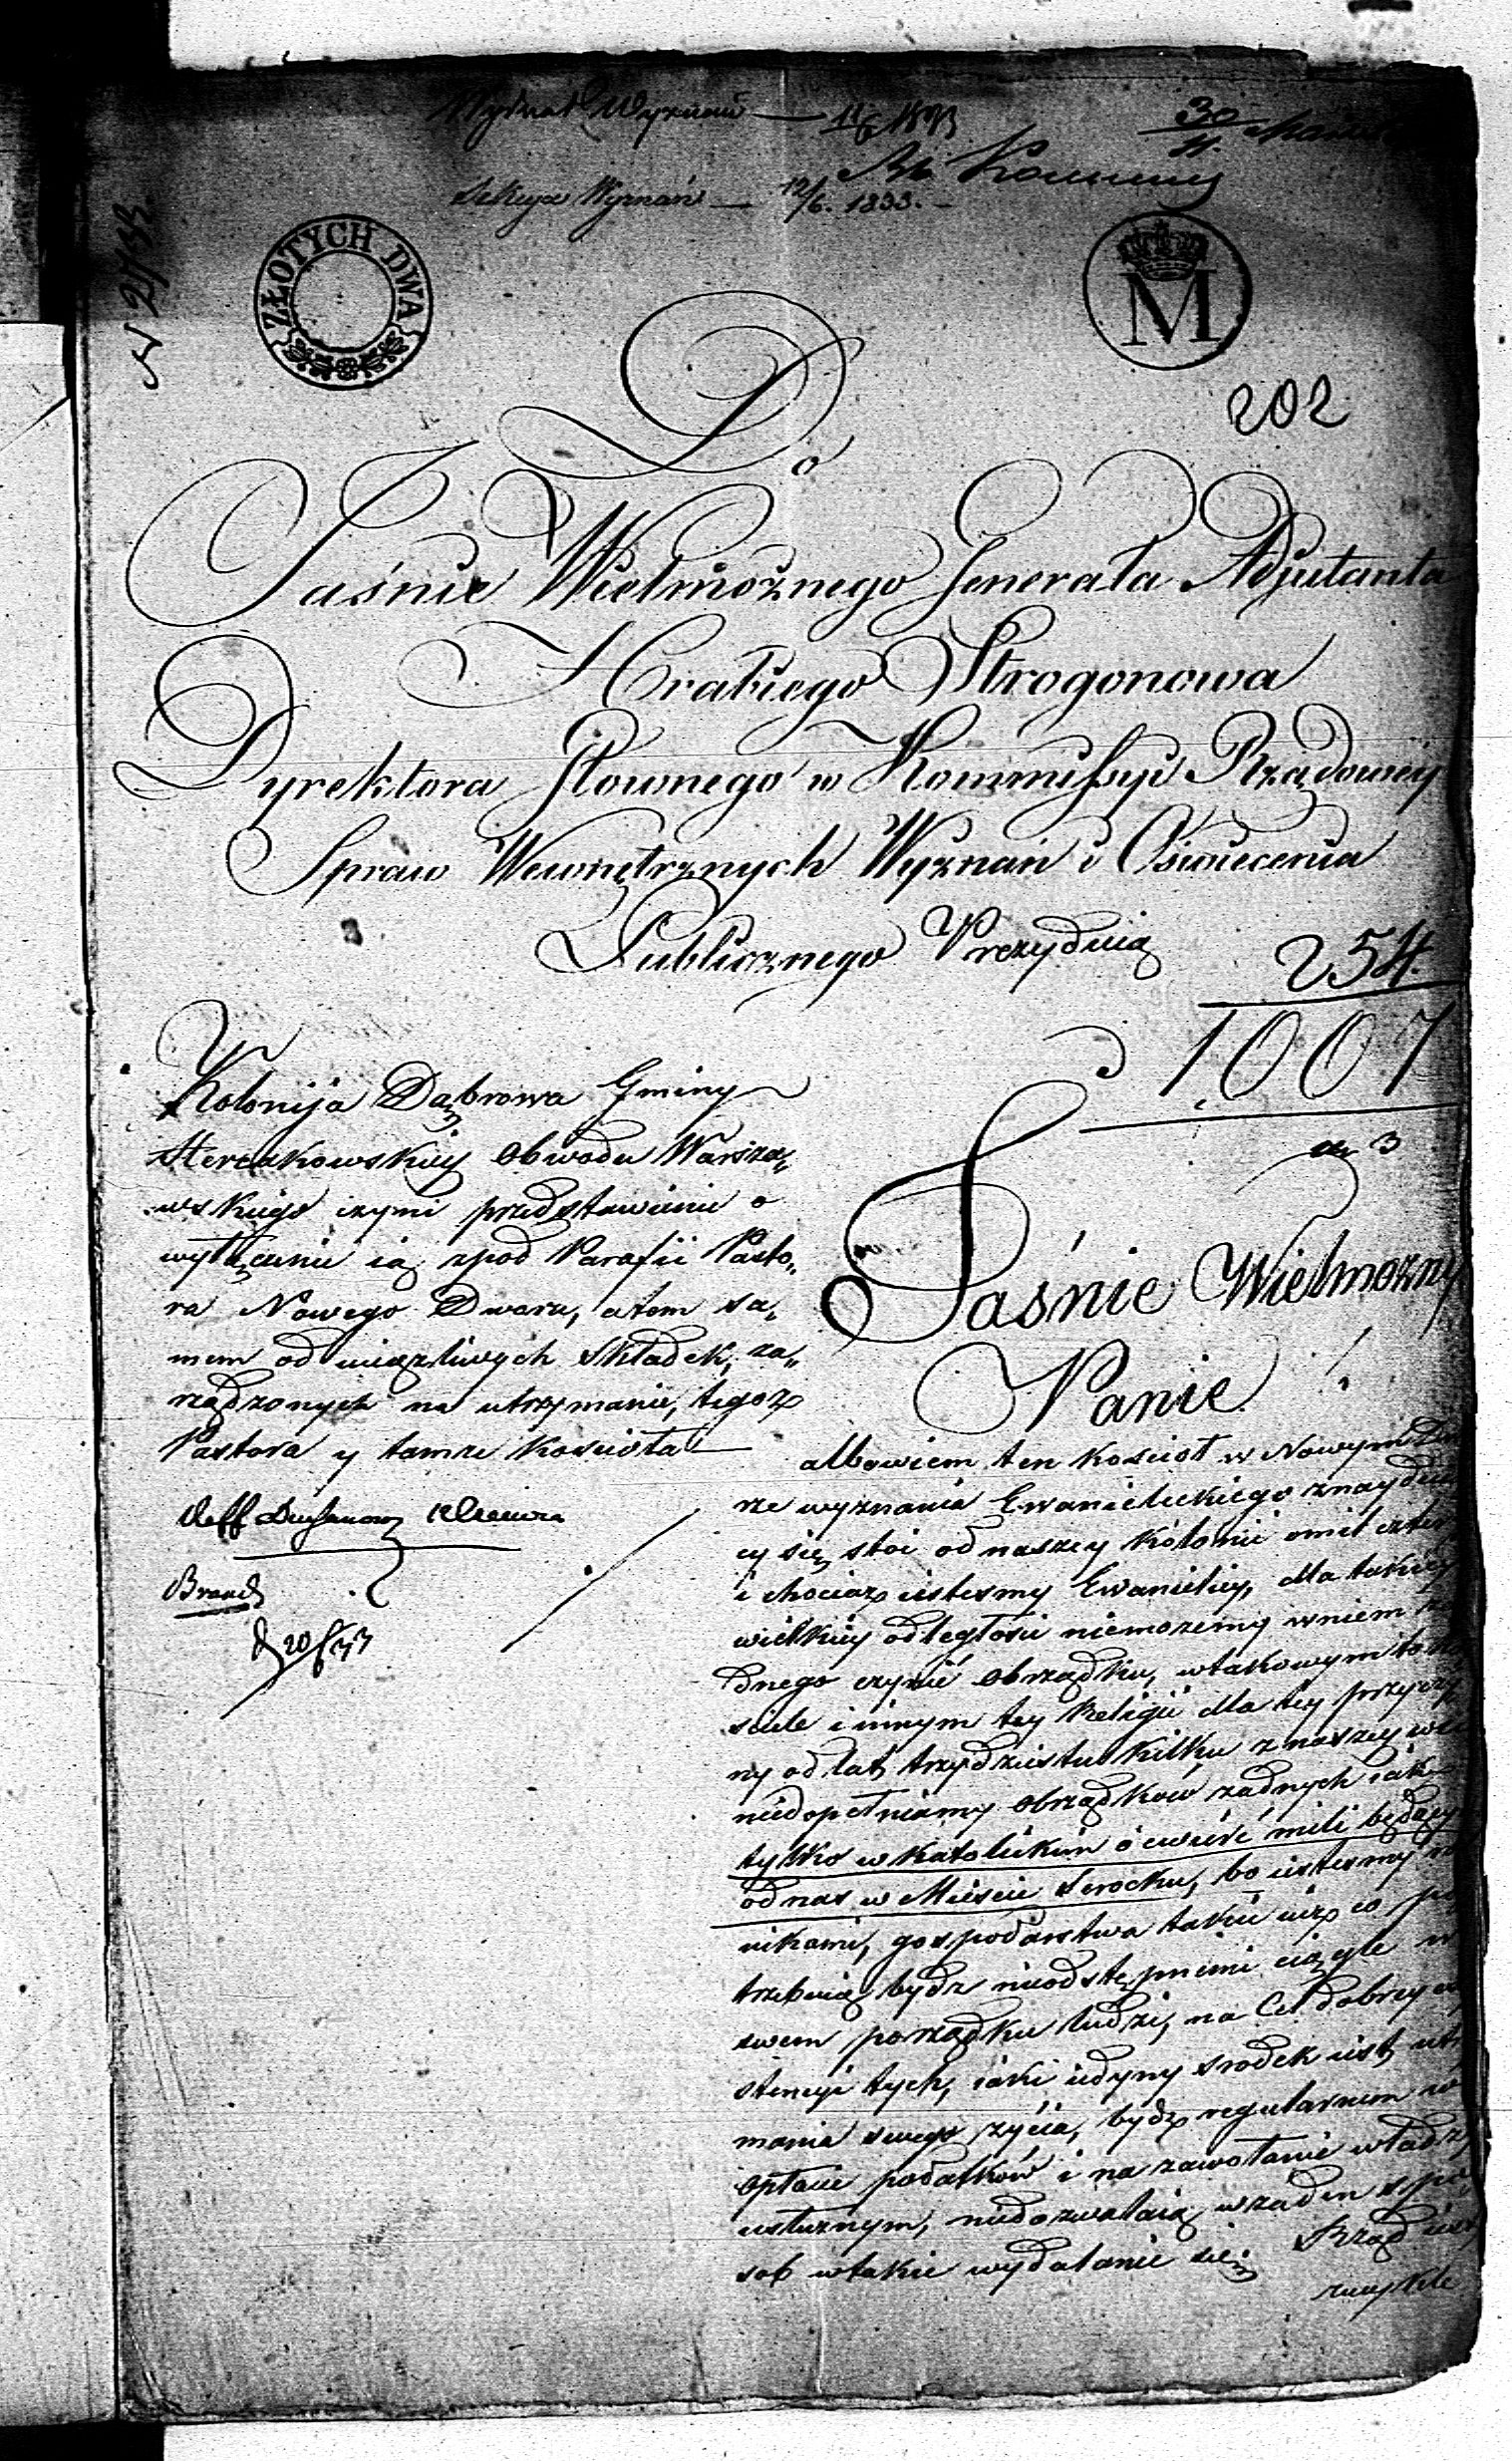 Wydział Wyznań — 11/6 1833
30/11
Sekcya Wyznań — 12/6. 1833. —
ZŁOTYCH DWA
M
202
Do
Jaśnie Wielmożnego Jenerała Adjutanta
Hrabiego Strogonowa
Dyrektora Głownego w Kommissyi Rządowey
Spraw Wewnętrznych Wyznań i Oświecenia
Publicznego Prezyduią
254.
1007
Kolonija Dąbrowa Gminy
Obwodu Warsza„
wskiego czyni przedstawienie o
wyłączenie ią zpod Parafii Pasto„
ra Nowego Dworu, a tem sa„
mem od uciążliwych składek, za„
rządzonych na utrzymanie, tegoż
Pastora y tamże kościoła
Braach
20/6 33
Jaśnie Wielmożny
Panie!
albowiem ten kosciół w Nowym Dwo
rze wyznania Ewanielickiego znayduią
cy się, stoi od naszey kolonii omil cztery
i chociaż iestesmy Ewanielicy, dla takiey
wielkiey odległosci niemożemy wniem ża
dnego czynić obrządku, wtakowym koś
ciele i innym tey Religii dla tey przyczy
ny od lat trzydziestu kilku z naszey wsi
niedopełniamy obrządków żadnych iak
tylko w katolickim o cwierć mili będącym
od nas w Mieście Serocku, bo iestesmy rol
nikami, gospodarstwa takie iuż co po
trzebuią bydź nieodstępnemi ciągle w
swem porządku ludzi, na Cel dobrey exy
stencyi tych, iaki iedyny srodek iest utrzy
mania swego życia, bydź regularnem w
opłacie podatków i na zawołanie władzy
usłużnym, niedozwalaią w żaden spo
sob wtakie wydalanie się. Rząd iest
zwykle